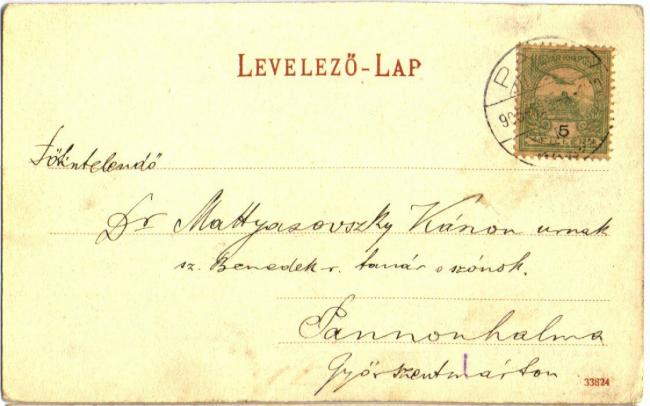 LEVELEZŐ-LAP
MAGYAR KIR. POSTA
5
Főtisztelendő
Dr Mattyasovszky Kánon urnak
sz. Benedek-r. tanár s szónok.
Pannonhalma
Győrszentmárton
33824